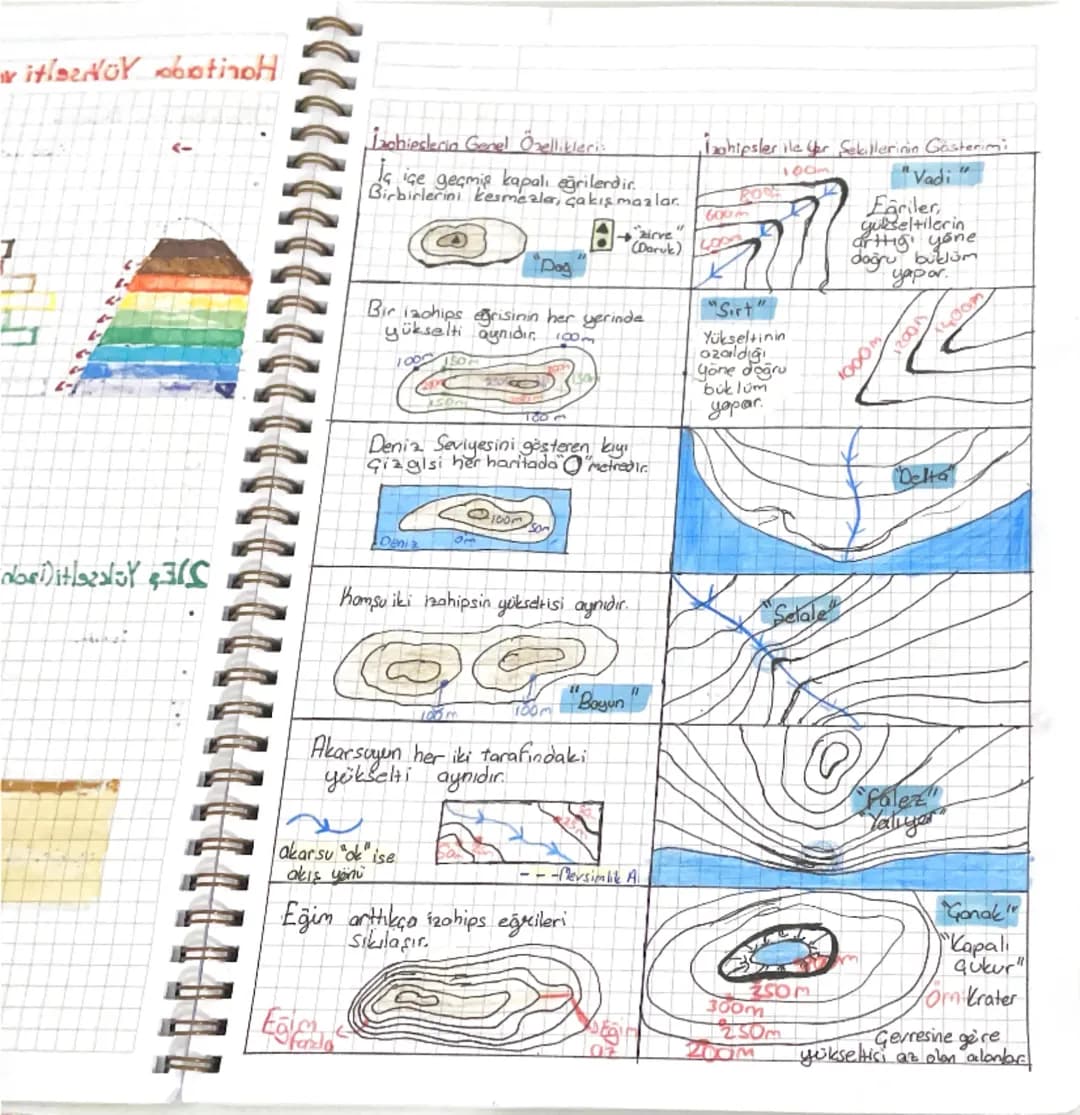 Haritada Yükselti
2) Eş Yükselti (izoh
İzohipslerin Genel Özellikleri:
İç içe geçmiş kapalı eğrilerdir.
Birbirlerini kesmezler, çakışmazlar.
"Dağ"
"zirve"
(Doruk)
Bir izohips eğrisinin her yerinde
yükselti aynıdır.
100m
100m
150m
150m
150m
100m
Deniz Seviyesini gösteren kıyı
çizgisi her haritada "0" metredir.
100m
50m
Deniz
0m
Komşu iki izohipsin yükseltisi aynıdır.
100m
100m
"Boyun"
Akarsuyun her iki tarafındaki
yükselti aynıdır.
akarsu "ok" ise
akış yönü
---Mevsimlik A.
Eğim arttıkça izohips eğrileri
sıkılaşır.
Eğim
fazla
Eğim
az
İzohipsler ile Yer Şekillerinin Gösterimi
100m
800m
600m
400m
"Vadi"
Eğriler,
yükseltilerin
arttığı yöne
doğru büklüm
yapar.
"Sırt"
Yükseltinin
azaldığı
yöne doğru
büklüm
yapar.
1000m
1200m
1400m
"Delta"
"Şelale"
"Falez"
"Yalıyar"
"Çanak"
"Kapalı
çukur"
Örn: Krater
350m
300m
250m
200m
Çevresine göre
yükseltisi az olan alanlar.